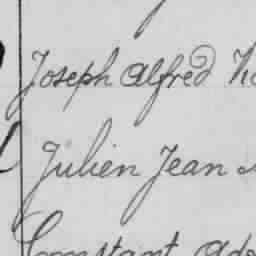 Joseph Alfred
Julien Jean
Constant